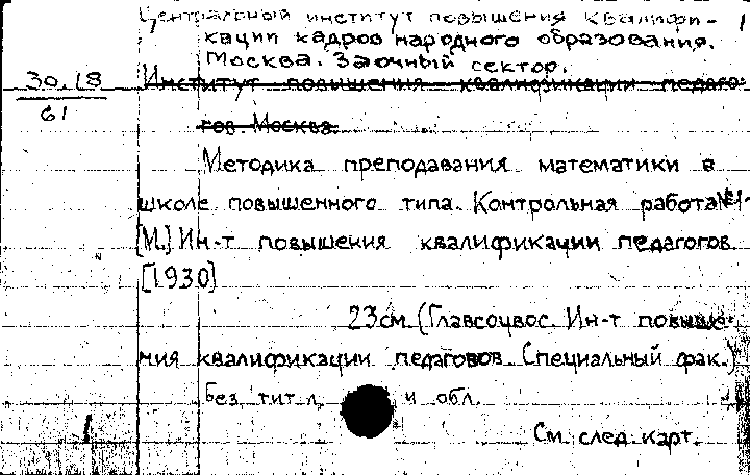 Центральный институт повышения квалифи- 1
кации кадров народного образования.
Москва. Заочный сектор.
30.18
61
Институт повышения квалификации педаго-
гов. Москва.
Методика преподавания математики в
школе повышенного типа. Контрольная работа №1-
[М.] Ин-т повышения квалификации педагогов
[1930]
23см. (Главсоцвос. Ин-т повыше-
ния квалификации педагогов. Специальный фак.)
Без тит л. и обл.
1
См. след. карт.